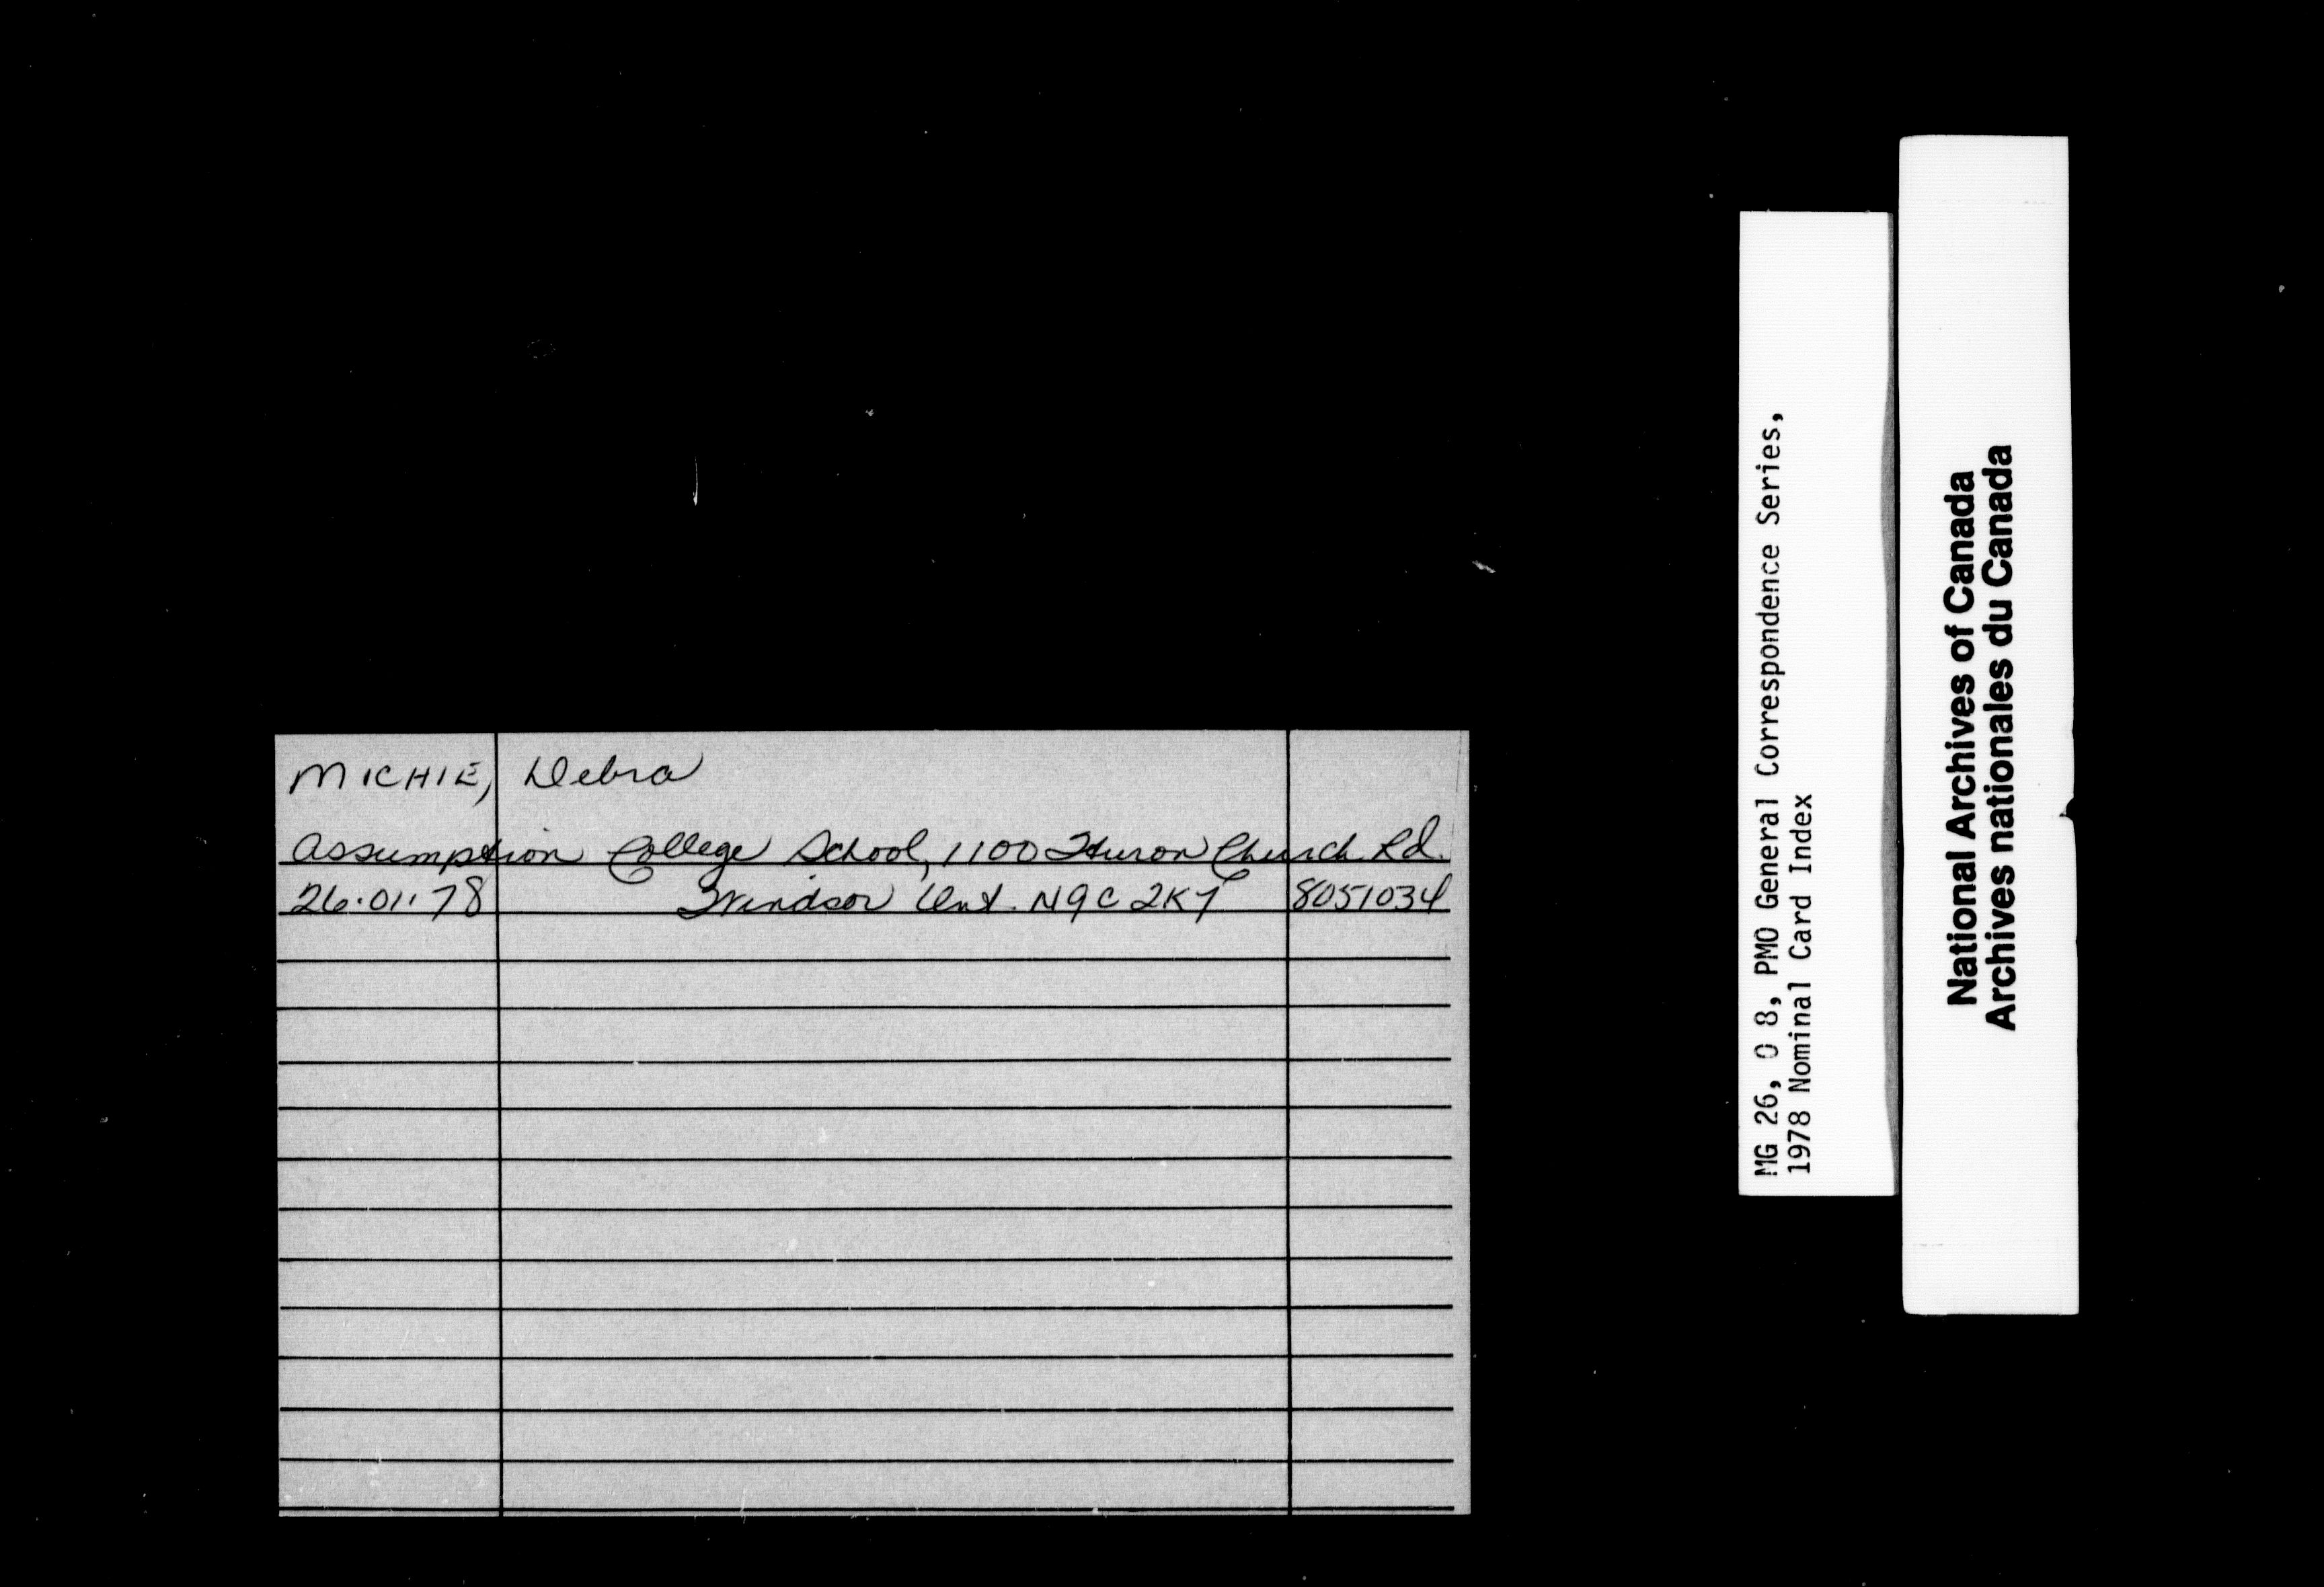 MICHIE, Debra
Assumption College School, 1100 Huron Church Rd.
26.01.78 Windsor Ont. N9C 2K7 8051034
MG 26, O 8, PMO General Correspondence Series,
1978 Nominal Card Index
National Archives of Canada
Archives nationales du Canada